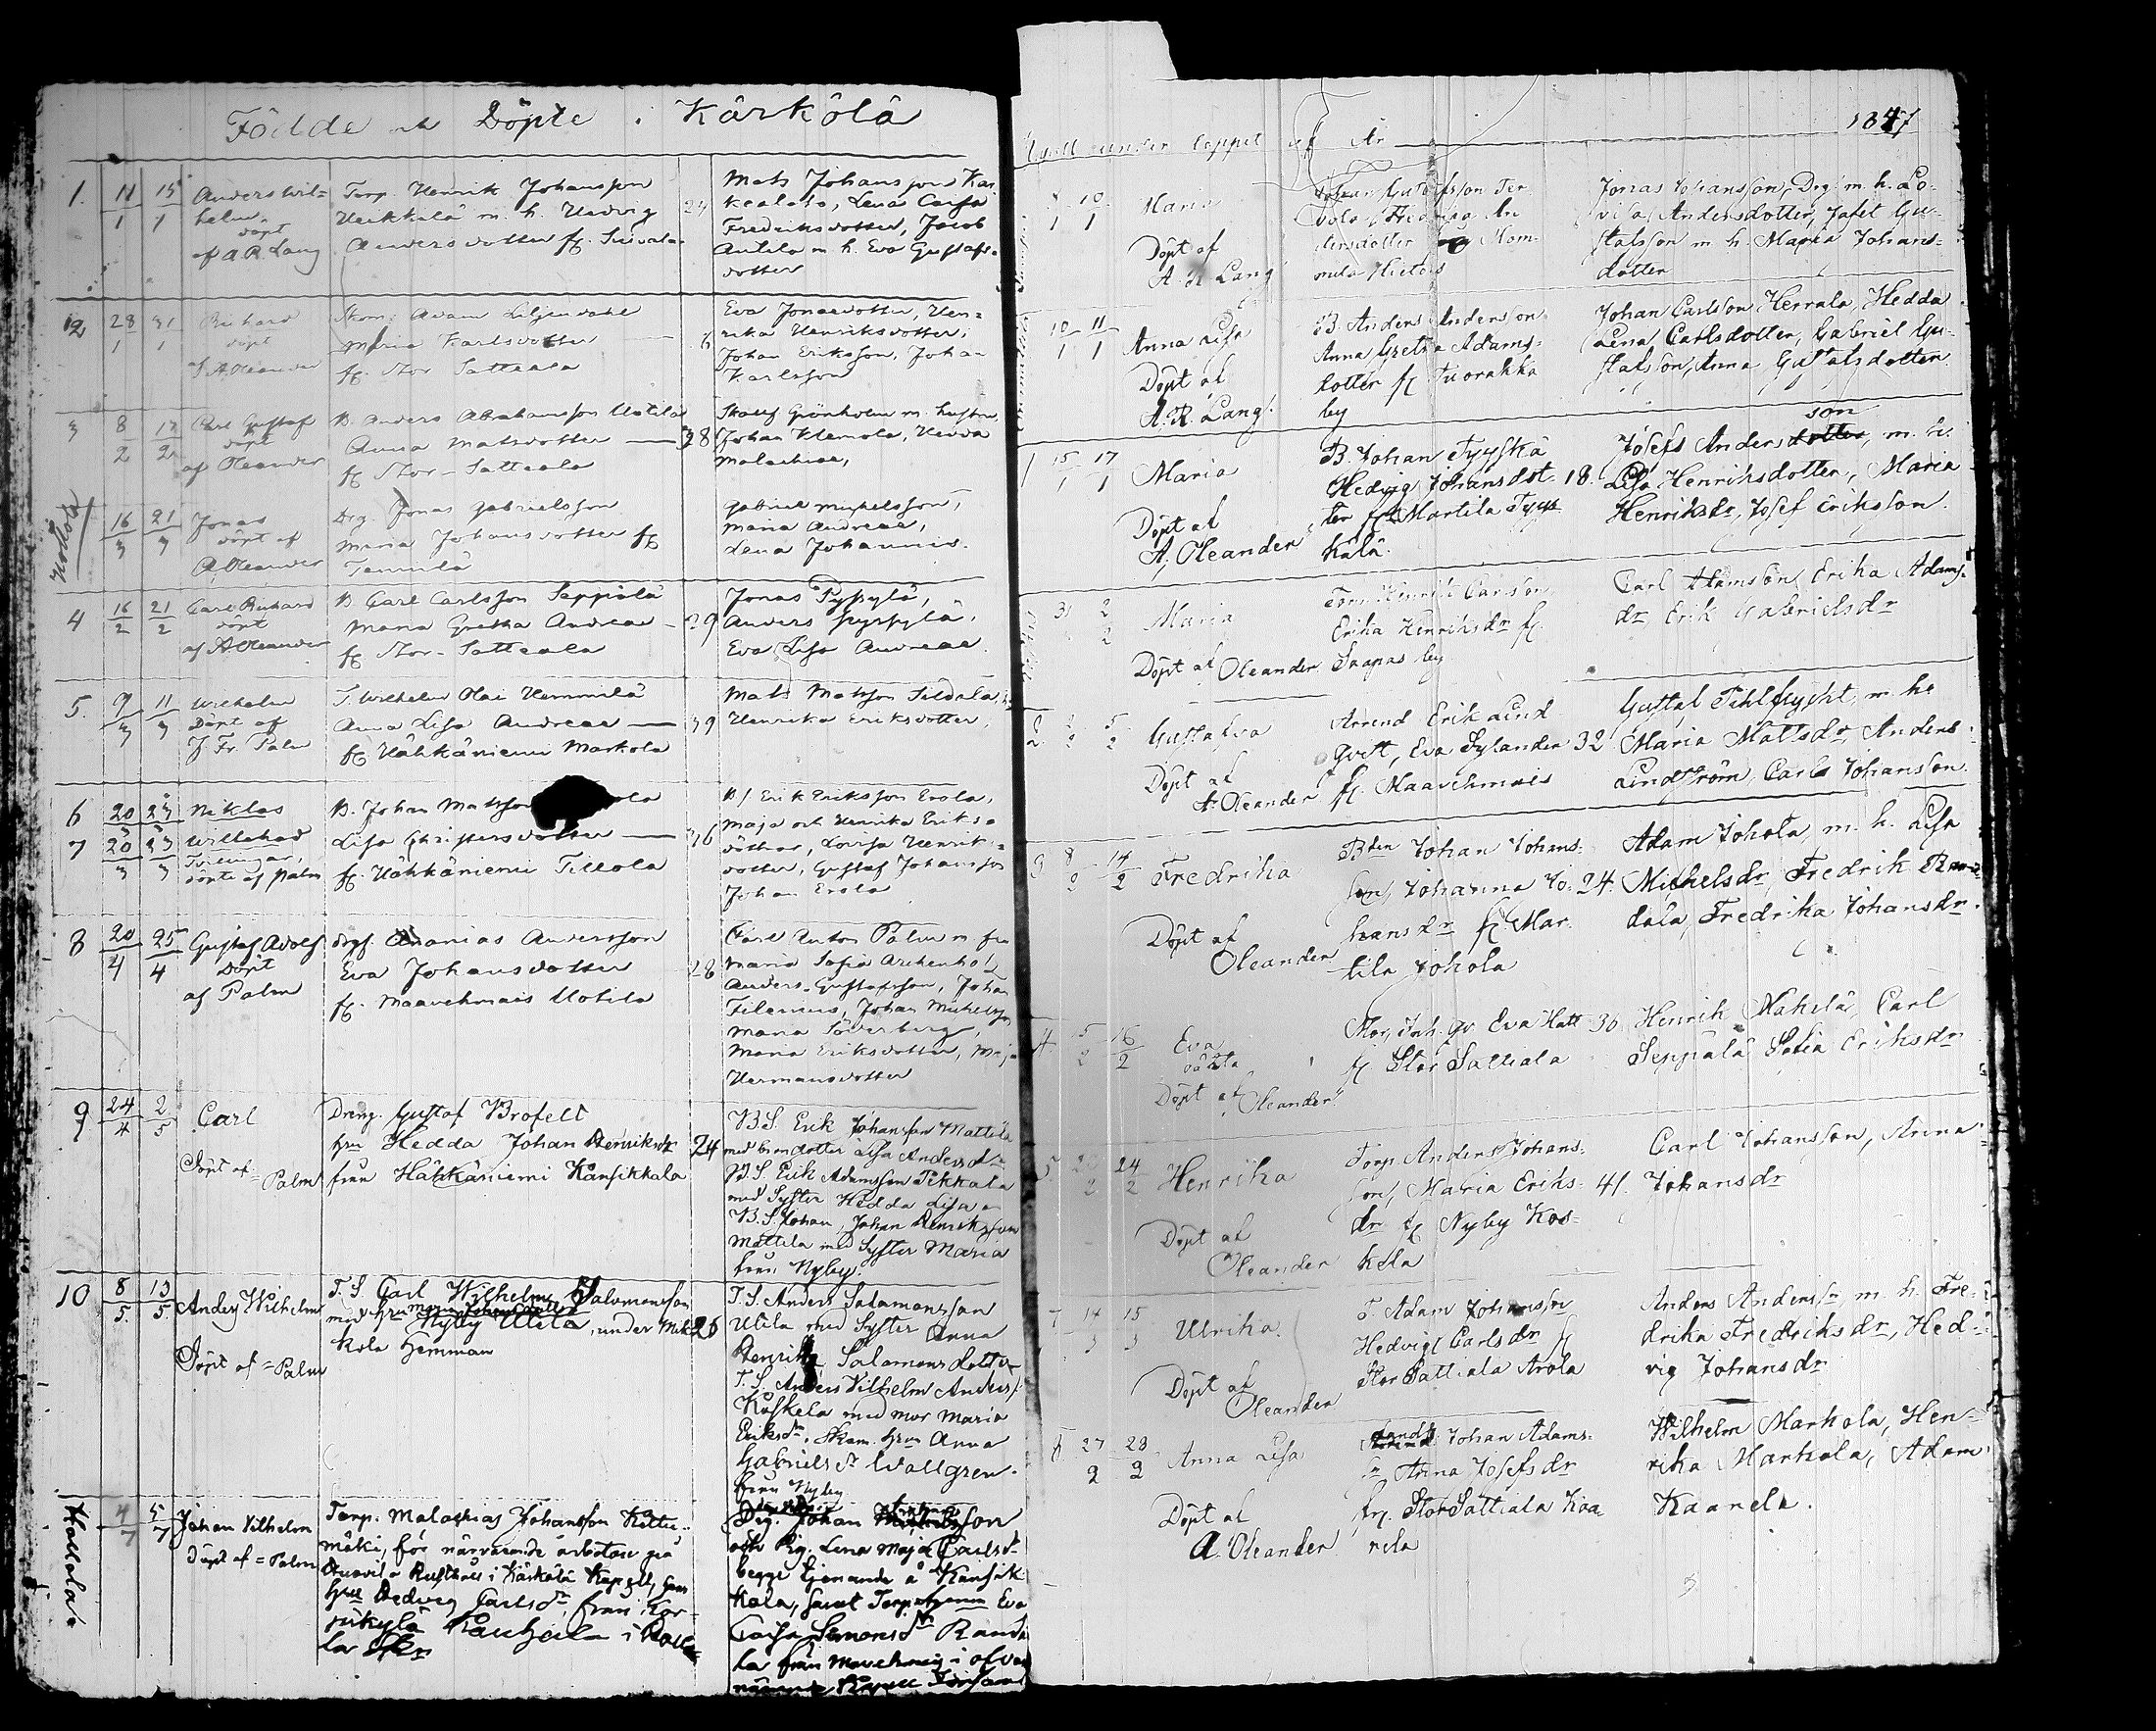 Födde och Döpte i Kärkölä
1. 11/1 15/1 Anders Wil=
helm
döpt
af A R Lang
Torp. Henrik Johansson
Uckkulä m. h. Hedvig
Andersdotter fr.
24
Mats Johansson
Lena Caisa
Fredriksdotter, Jacob
Antila m h. Eva Gustafs=
dotter
2 28/1 31/1 Richard
döpt
A Oleander
Skom: Adam Liljendahl
Maria Karlsdotter
fr. Stor Sattiala
Eva Jonaedotter, Hen=
rika Henriksdotter,
Johan Eriksson, Johan
Karlsson
3 8/2 12/2 Carl Gustaf
döpt
af Oleander
B. Anders Abrahamsson Uotila
Anna Matsdotter
fr. Stor-Sattiala
28
Skoluf Grönholm m. hustru
Johan Klemola, Hedda
Malachiae,
Hollola
16/3 21/3 Jonas
döpt af
A Oleander
Drg. Jonas Gabrielsson
Maria Johansdotter fr
Tennilä
Gabriel Michelsson,
Maria Andreae,
Lena Johannis.
4 16/2 21/2 Carl Richard
döpt
af A Oleander
B Carl Carlsson Seppälä
Maria Gretha Andreae
fr. Stor-Sattiala
29
Jonas Pypylä,
Anders Pyspylä,
Eva Lisa Andreae.
5. 9/3 11/3 Wilhelm
Döpt af
J. Fr. Palm
T. Wilhelm Olai Hemmilä
Anna Lisa Andreae
fr Hähkäniemi Markola
39
Mats Matsson Sildala,
Henrika Eriksdotter,
6 20/3 23/3 Niklas
7 20/3 23/3 Willehad
Tvillingar,
döpte af Palm
B. Johan Matsson
Lisa Christersdotter
fr. Hähkäniemi Tillola
36
B/ Erik Eriksson Erola,
Maja och Henrika Eriks=
döttrar, Lovisa Henriks=
dotter, Gustaf Johansson
Johan Erola
8 20/4 25/4 Gustaf Adolf
Döpt
af Palm
drgf. Ananias Andersson
Eva Johansdotter
fr. Maavehmais Uotila
28
Carl Anton Palm m fru
Maria Sofia Archenholz
Anders Gustafsson, Johan
Filenius, Johan Michelsson
Maria Söderberg,
Maria Eriksdotter, Maja
Hermansdotter
9 24/4 2/5 Carl
Döpt af = Palm
Dreng. Gustaf Brofelt
hru Hedda Johan Henriksdr
från Hähkäniemi Kansikkala
24
B.S. Erik Johansson Mattila
med brordotter Lisa Andersdr
B.S. Erik Adamsson Pekkala
med Syster Hedda Lisa
B.S. Johan, Johan Henriksson
Mattila med Syster Maria
från Nyby.
10 8/5. 13/5. Anders Wilhelm
Döpt af = Palm
T. S. Carl Wilhelm Salomonsson
med hru Maria Johansdotter
Nyby Utila, under Mik
kola Hemman
26
T.S. Anders Salamonsson
Utila med Syster Anna
Henrika Salamonsdotter
T. S. Anders Vilhelm Anderss
Koskela med mor Maria
Eriksdr. Skom. hru Anna
Gabrielsdr Wallgren
från Nyby
Hollola.
4/7 5/7 Johan Vilhelm
Döpt af = Palm
Torp. Malachias Johansson Kettu=
mäki, för närvarande arbetare på
Rusthåll i Kärkölä Kapell, hans
hru Hedwig Carlsdr, från Kor=
pikylä i Hollo=
la Skn
Drg. Johan son
och Pig. Lena Maja Carlsdr
begge tjenande å Kansik
kala, samt Eva
Caisa Simonsdr
la från Mavehmais i

Kapell under loppet af År 1847
9/1 10/1 Maria
Döpt af
A. R Lang
Johan Gustafsson Ter
vola, Hedvig An
dersdotter Mom=
mila Hietois
Jonas Johansson, Drg: m. h. Lo=
visa Andersdotter, Jafet Gu=
stafsson m h. Maria Johans=
dotter
10/1 11/1 Anna Lisa
Döpt af
A. R. Lang.
B. Anders Andersson
Anna Gretha Adams=
dotter fr Tuorakka
by
Johan Carlsson Herrala, Hedda
Lena Carlsdotter, Gabriel Gu=
stafsson, Anna Gustafsdotter
1 15/1 17/1 Maria
Döpt af
A. Oleander
B. Johan Tyyskä
Hedvig Johansdot=
ter fr. Martila Tyys
kälä.
18.
Josefs Anders dotter son, m. h.
Lisa Henriksdotter, Maria
Henriksdr, Josef Eriksson.
31 2/2 Maria
Döpt af Oleander
Torp. Henrik Carlsson
Erika Henriksdr fr.
Saapas by
Carl Adamsson, Erika Adams=
dr Erik Gabrielsdr
2 2/2 5/2 Gustafva
Döpt af
A. Oleander
Arrend Erik Lind
qvist, Eva Sylander
fr. Maavehmais
32
Gustaf Fihlflycht, m. h.
Maria Mattsdr, Anders
Lindström, Carl Johansson.
3 8/2 14/2 Fredrika
Döpt af
Oleander
Bden Johan Johans=
son, Johanna Jo=
hansdr fr. Mar=
tila Johola
24.
Adam Johola, m. h. Lisa
Michelsdr, Fredrik
dala, Fredrika Johansdr.
4. 15/2 16/2 Eva
oäkta
Döpt af Oleander
Mor, Inh. qv. Eva Hatt
fr Stor Sattiala
36
Henrik Mahelä, Carl
Seppälä Sofia Eriksdr
5. 20/2 24/2 Henrika
Döpt af
Oleander
Torp. Anders Johans=
son, Maria Eriks=
dr fr Nyby Kos=
kela
41.
Carl Johansson, Anna
Johansdr
7 14/3 15/3 Ulrika.
Döpt af
Oleander
T. Adam Johansson
Hedvig Carlsdr fr
Stor Sattiala Arola
Anders Anderssn, m. h. Fre=
drika Fredriksdr, Hed=
vig Johansdr
6 27/2 28/2 Anna Lisa
Döpt af
A. Oleander
Johan Adams=
sn Anna Josefsdr
fr. Stor Sattiala Kaa
nela
Wilhelm Markola, Hen=
rika Markola, Adam
Kaanela.